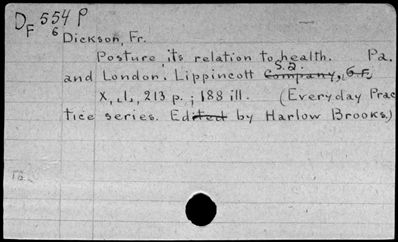 DF 554 P
6
Dickson, Fr.
Posture, its relation to health. Pa.
s.a.
and London, Lippincott Company,
X, 213 p.; 188 ill. (Everyday Prac
tice series. Edited by Harlow Brooks.)